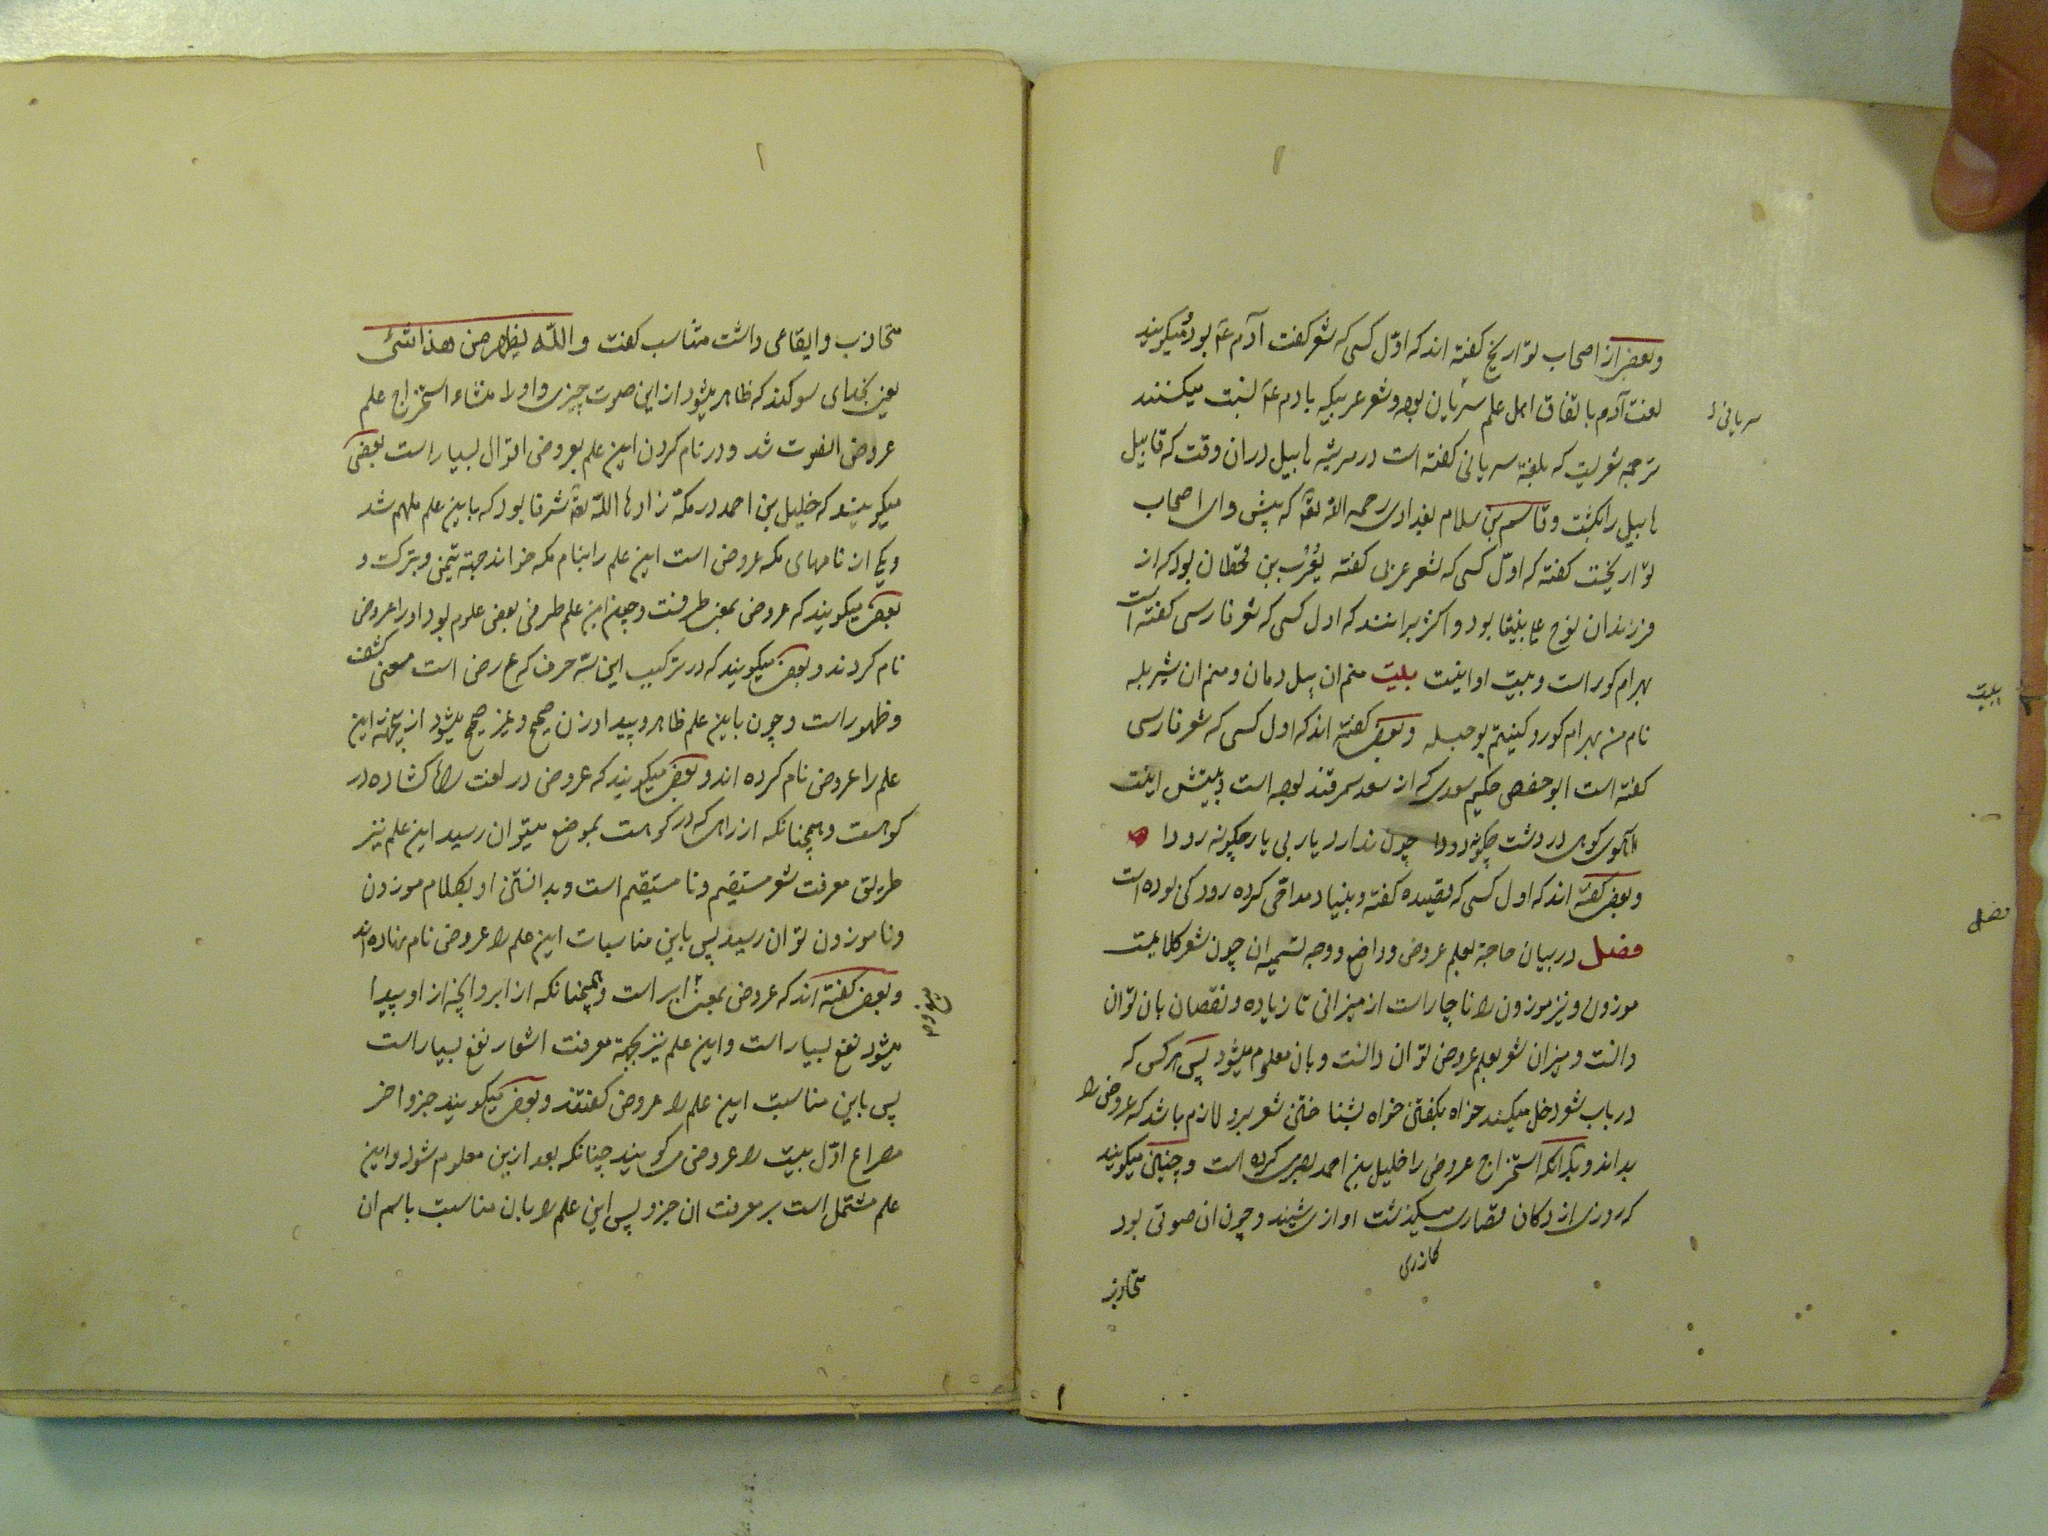 وبعضی از اصحاب تواریخ کفته اند که اوّل کسی که شعر کفت آدم عم بود و میکویند
لغت آدم باتفاق اهل علم سریان بوده و شعر عربیکه بادم عم نسبت میکنند
سریانی
ترجمه شعریست که بلغة سریانی کفته است در مرثیه هابیل دران وقت که قابیل
هابیل را بکشت وقاسم بن سلام بغدادی رحمه الله تعه که پیش وای اصحاب
تواریخست کفته که اوّل کسی که شعر عربی کفته یعرب بن قحطان بود که از
فرزندان نوح ع بود و اکثر برانند که اول کسی که شعر فارسی کفته است
بهرام کور است وبیت او اینست بیت منم ان پیل دمان و منم ان شیر یله
بیت
نام من بهرام کور و کنیتم بوجبله وبعضی کفته اند که اول کسی که شعر فارسی
کفته است ابو حفص حکیم سعدی که از سعد سمرقند بوده است و بیتش اینست
اهوی کوهی در دشت چکونه دودا چون ندارد یار بی یار چکونه رودا
وبعضی کفته اند که اول کسی که قصیده کفته و بنیاد مداحی کرده رودکی بوده است
فصل در بیان حاجة بعلم عروض و واضع و وجه تسمیه ان چون شعر کلامیست
فصل
موزون و نیز موزون را ناچار است از میزانی تا زیاده و نقصان بان توان
دانست و میزان شعر بعلم عروض توان دانست و بان معلوم میشود پس هر کس که
در باب شعر دخل میکند خواه بکفتن خواه بشناختن شعر برو لازم باشد که عروض را
بداند و بدانکه استخراج عروض را خلیل بن احمد بصری کرده است و چنین میکویند
که روزی از دکان قصاری میکذشت اوازی شنید و چون ان صوتی بود
کازری
متجاذب
متجاذب وایقاعی داشت متناسب کفت والله لیظهر من هذا شئ
یعنی بخدای سوکند که ظاهر میشود ازین صوت چیزی و اورا منشاء استخراج علم
عروض الفوت شد و در نام کردن این علم بعروض اقوال بسیار است بعضی
میکویند که خلیل بن احمد در مکه زادها الله تعه شرفا بود که باین علم ملهم شد
ویکی از نامهای مکه عروض است این علم را بنام مکه خواند جهة تیمن و تبرک و
بعضی میکویند که عروض بمعنی طرفست و چون این علم طرفی بعض علوم بود اورا عروض
نام کردند و بعضی میکویند که در ترکیب این سه حرف که ع رض است معنی کشف
وظهور است و چون باین علم ظاهر و پیدا وزن صحیح و غیر صحیح میشود از ین جهة این
علم را عروض نام کرده اند و بعضی میکویند که عروض در لغت راه کشاده در
کوهست و همچنانکه از راهی که در کوهست بموضع میتوان رسید این علم نیز
طریق معرفت شعر مستقیم و نا مستقیم است و بدانستن او بکلام موزون
ونا موزون توان رسید پس باین مناسبات این علم را عروض نام نهاده اند
و بعضی کفته اند که عروض بمعنی ابر است و همچنانکه از ابر وانچه از او پیدا
میشود نفع بسیار است و این علم نیز بجهة معرفت اشعار نفع بسیار است
پس باین مناسبت این علم را عروض کفتند و بعضی میکویند جزو اخر
مصراع اوّل بیت را عروض می کویند چنانکه بعد ازین معلوم شود و این
علم مشتمل است بر معرفت ان جزو پس این علم را بان مناسبت باسم ان